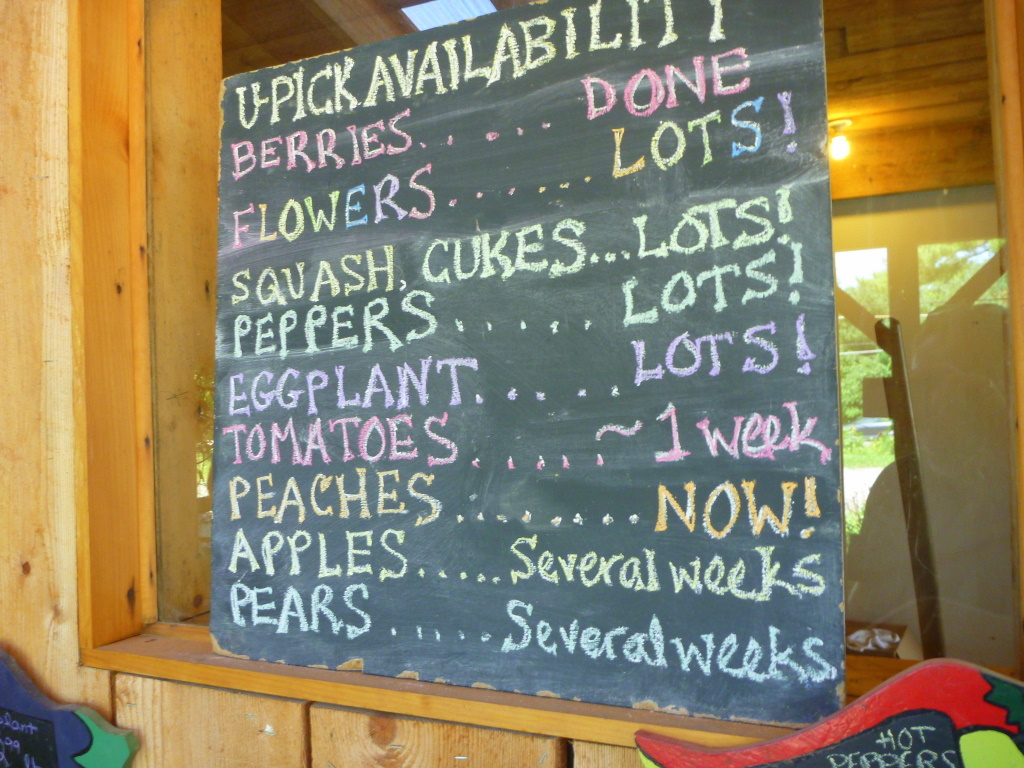 U-PICK AVAILABILITY
BERRIES..... DONE
FLOWERS...... LOTS!
SQUASH, CUKES...LOTS!
PEPPERS..... LOTS!
EGGPLANT..... LOTS!
TOMATOES..... ~1 week
PEACHES....... NOW!
APPLES..... Several weeks
PEARS ..... Several weeks
HOT
PEPPERS